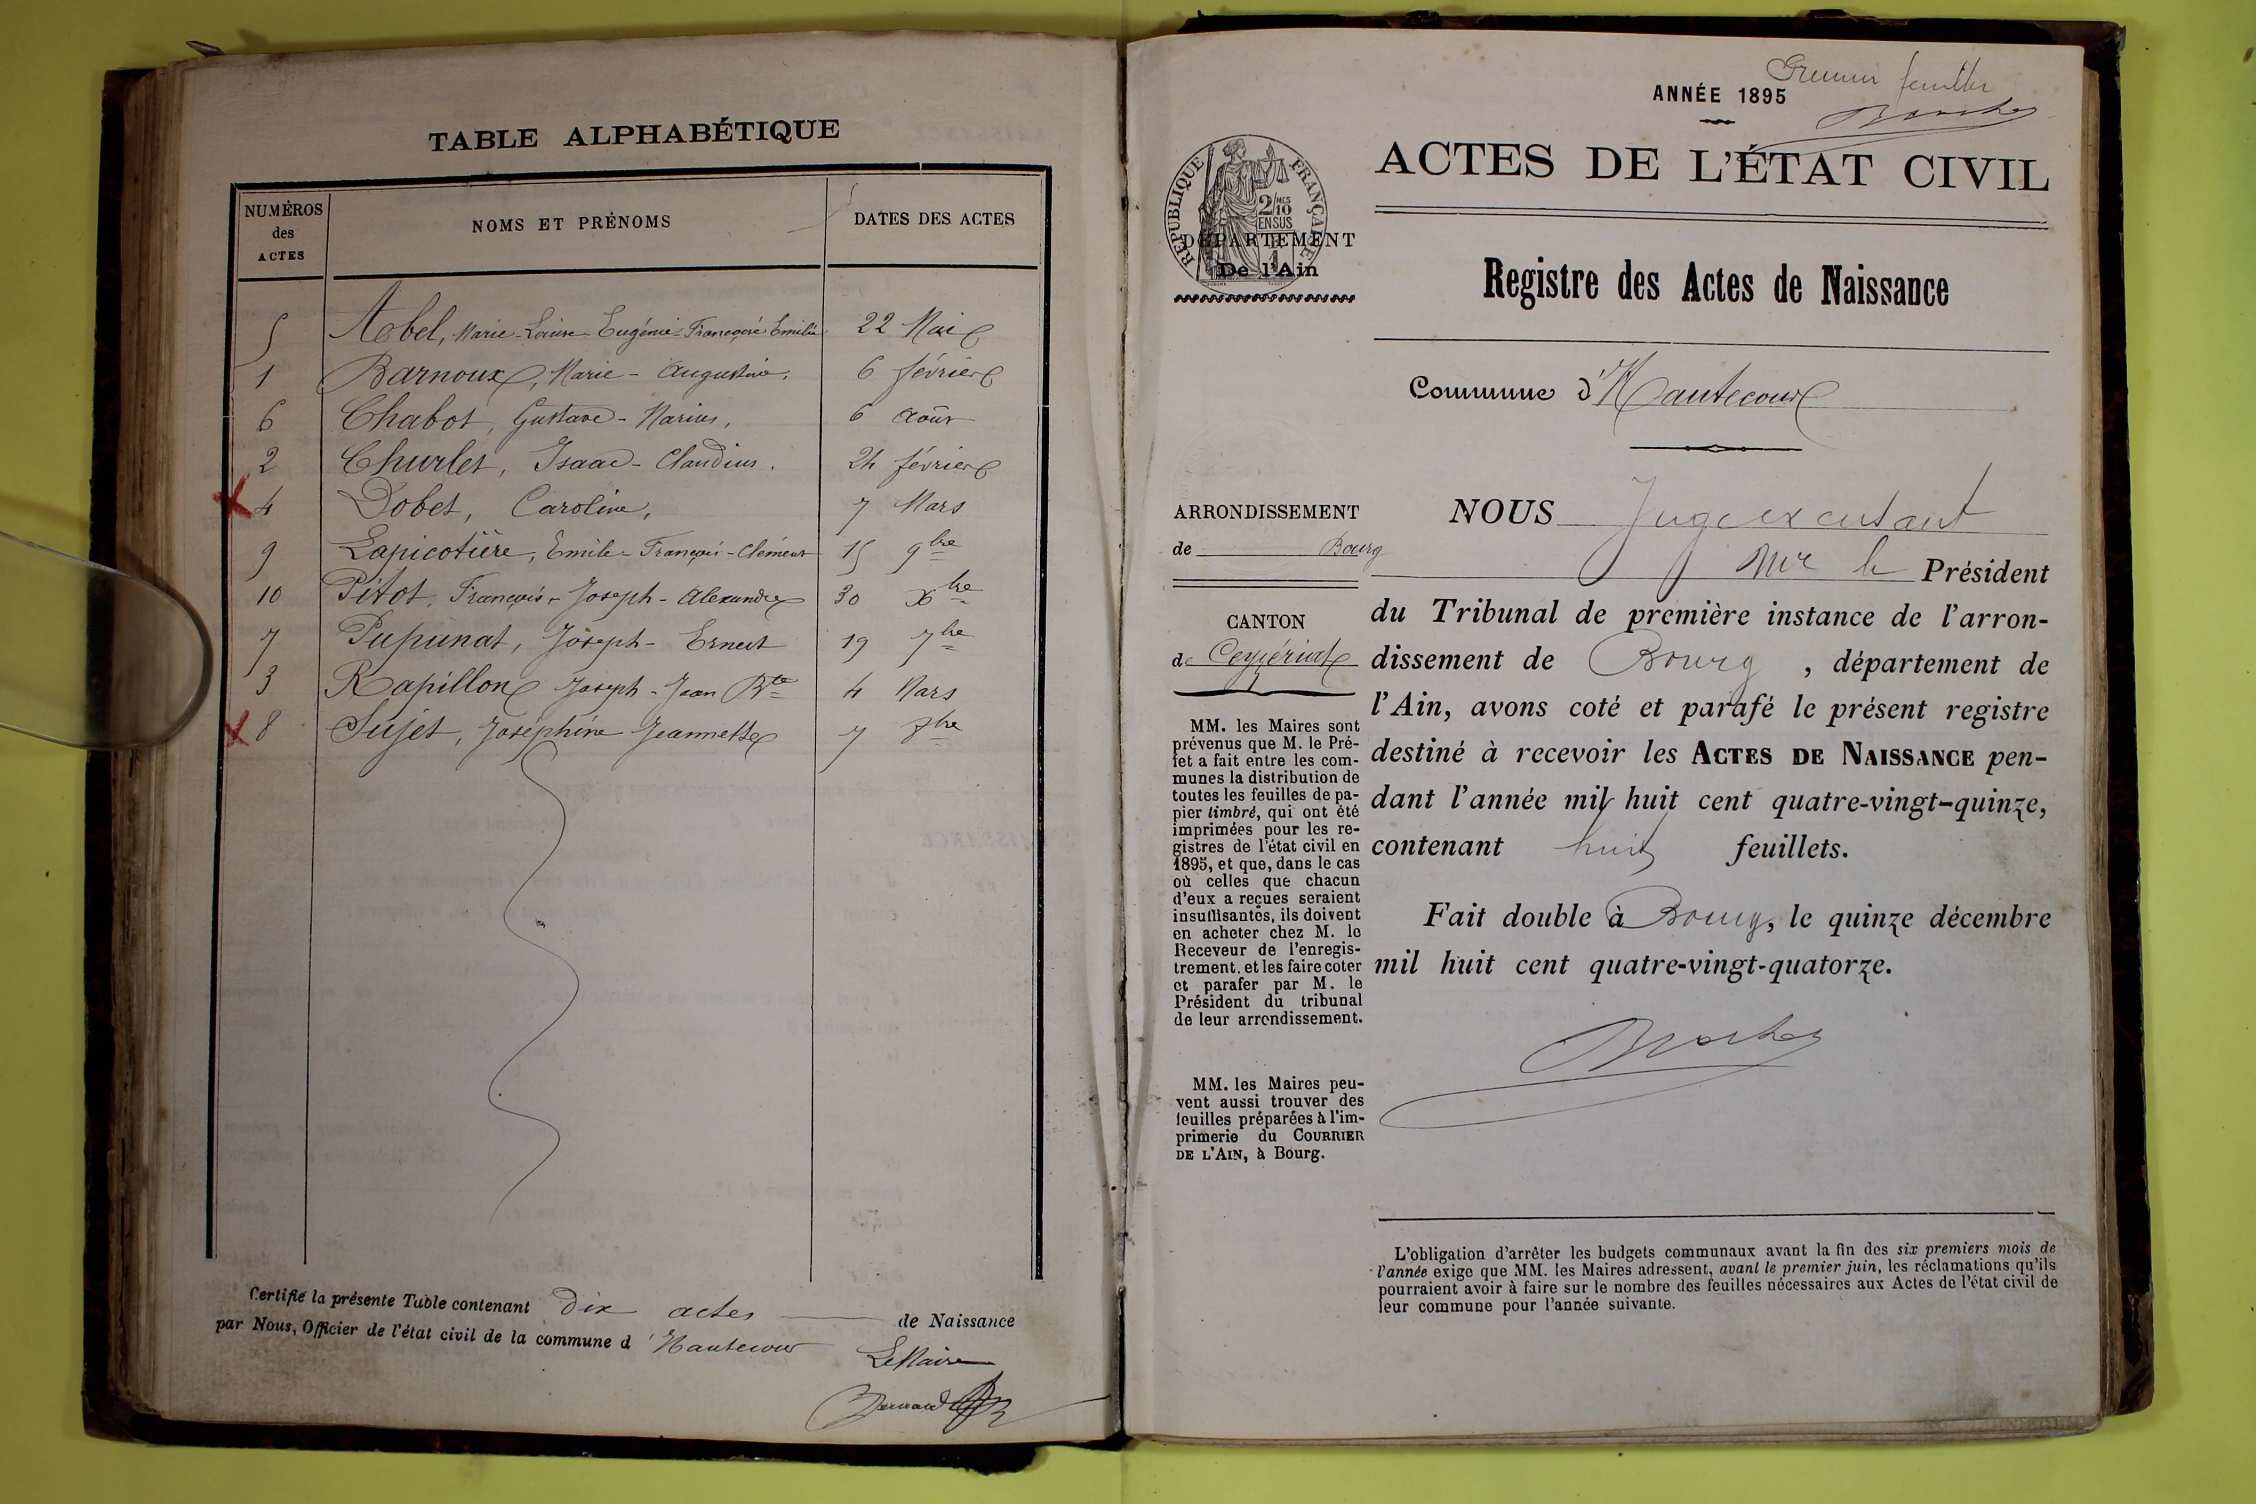 TABLE ALPHABÉTIQUE
NUMÉROS des ACTES
NOMS ET PRÉNOMS
DATES DES ACTES
5 Abel, Marie-Louise-Eugénie-Françoise Emilie 22 Mai
1 Barnoux, Marie-Augustine. 6 février
6 Chabot, Gustave-Marius, 6 août
2 Churlet, Isaac-Claudius. 24 février
4 Dobet, Caroline, 7 Mars
9 Lapicotière, Emile-François-Clément 15 9bre
10 Pitot, François-Joseph-Alexandre 30 Xbre
7 Pupunat, Joseph-Ernest 19 7bre
3 Rapillon Joseph-Jean Bte 4 Mars
8 Sujet, Joséphine Jeannette 7 8bre
Certifié la présente Table contenant dix actes de Naissance
par Nous, Officier de l'état civil de la commune d'Hautecour
Le Maire
Bernard
Premier feuillet
ANNÉE 1895
ACTES DE L'ÉTAT CIVIL
RÉPUBLIQUE FRANÇAISE
2/10 MES
EN SUS
DÉPARTEMENT
De l'Ain
Registre des Actes de Naissance
Commune d'Hautecour
ARRONDISSEMENT
de Bourg
CANTON
de Ceyzériat
MM. les Maires sont
prévenus que M. le Pré-
fet a fait entre les com-
munes la distribution de
toutes les feuilles de pa-
pier timbré, qui ont été
imprimées pour les re-
gistres de l'état civil en
1895, et que, dans le cas
où celles que chacun
d'eux a reçues seraient
insuffisantes, ils doivent
en acheter chez M. le
Receveur de l'enregis-
trement, et les faire coter
et parafer par M. le
Président du tribunal
de leur arrondissement.
MM. les Maires peu-
vent aussi trouver des
feuilles préparées à l'im-
primerie du COURRIER
DE L'AIN, à Bourg.
NOUS Juge
Mr le Président
du Tribunal de première instance de l'arron-
dissement de Bourg, département de
l'Ain, avons coté et parafé le présent registre
destiné à recevoir les ACTES DE NAISSANCE pen-
dant l'année mil huit cent quatre-vingt-quinze,
contenant huit feuillets.
Fait double à Bourg, le quinze décembre
mil huit cent quatre-vingt-quatorze.
L'obligation d'arrêter les budgets communaux avant la fin des six premiers mois de
l'année exige que MM. les Maires adressent, avant le premier juin, les réclamations qu'ils
pourraient avoir à faire sur le nombre des feuilles nécessaires aux Actes de l'état civil de
leur commune pour l'année suivante.